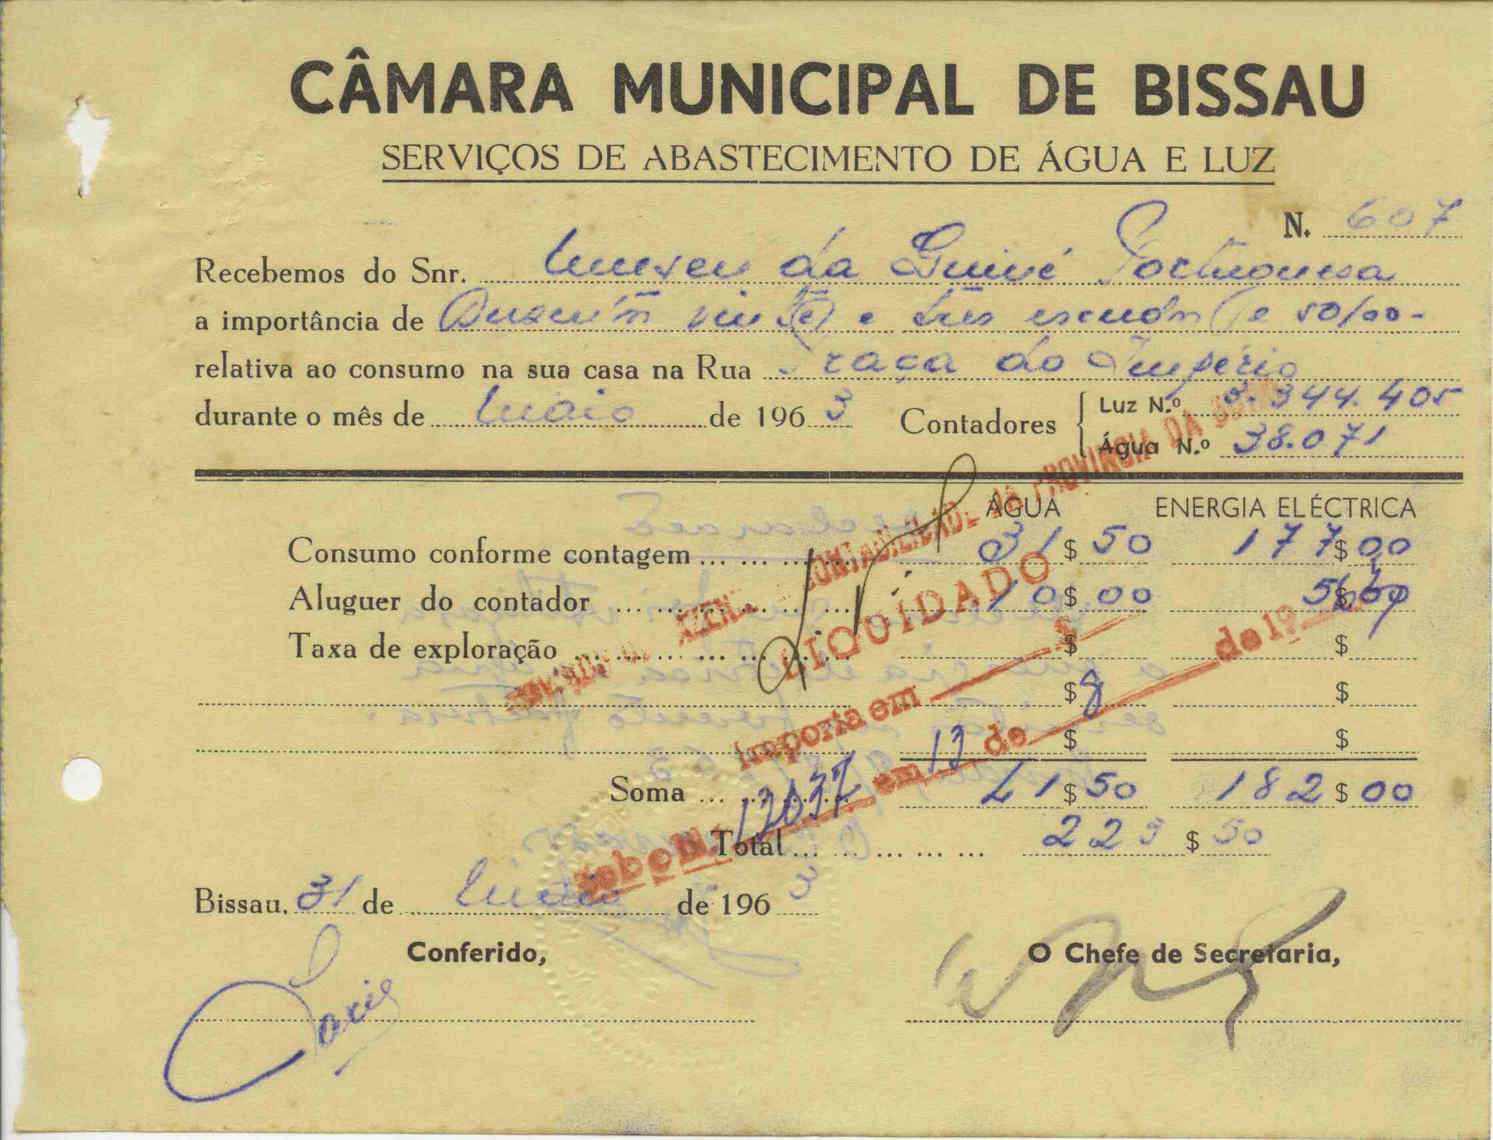 CÂMARA MUNICIPAL DE BISSAU
SERVIÇOS DE ABASTECIMENTO DE ÁGUA E LUZ
N. 607
Recebemos do Snr. Museu da Guiné Portuguesa
a importância de Duzentos vinte e três escudos e 50/00-
relativa ao consumo na sua casa na Rua Praça do Império
durante o mês de Maio de 1963 Contadores
Luz N.º 3.344.405
Água N.º 38.071
ÁGUA ENERGIA ELÉCTRICA
Consumo conforme contagem ... 31$50 177$00
Aluguer do contador ... 10$00 5$00
Taxa de exploração ... $ $
$ $
$ $
Soma ... 41$50 182$00
Total ... 223$50
CONTABILIDADE DA PROVINCIA DA
LIQUIDADO
Importa em $
em 13 de 8 de 19
12037
Bissau, 31 de Maio de 1963
Conferido,
O Chefe de Secretaria,